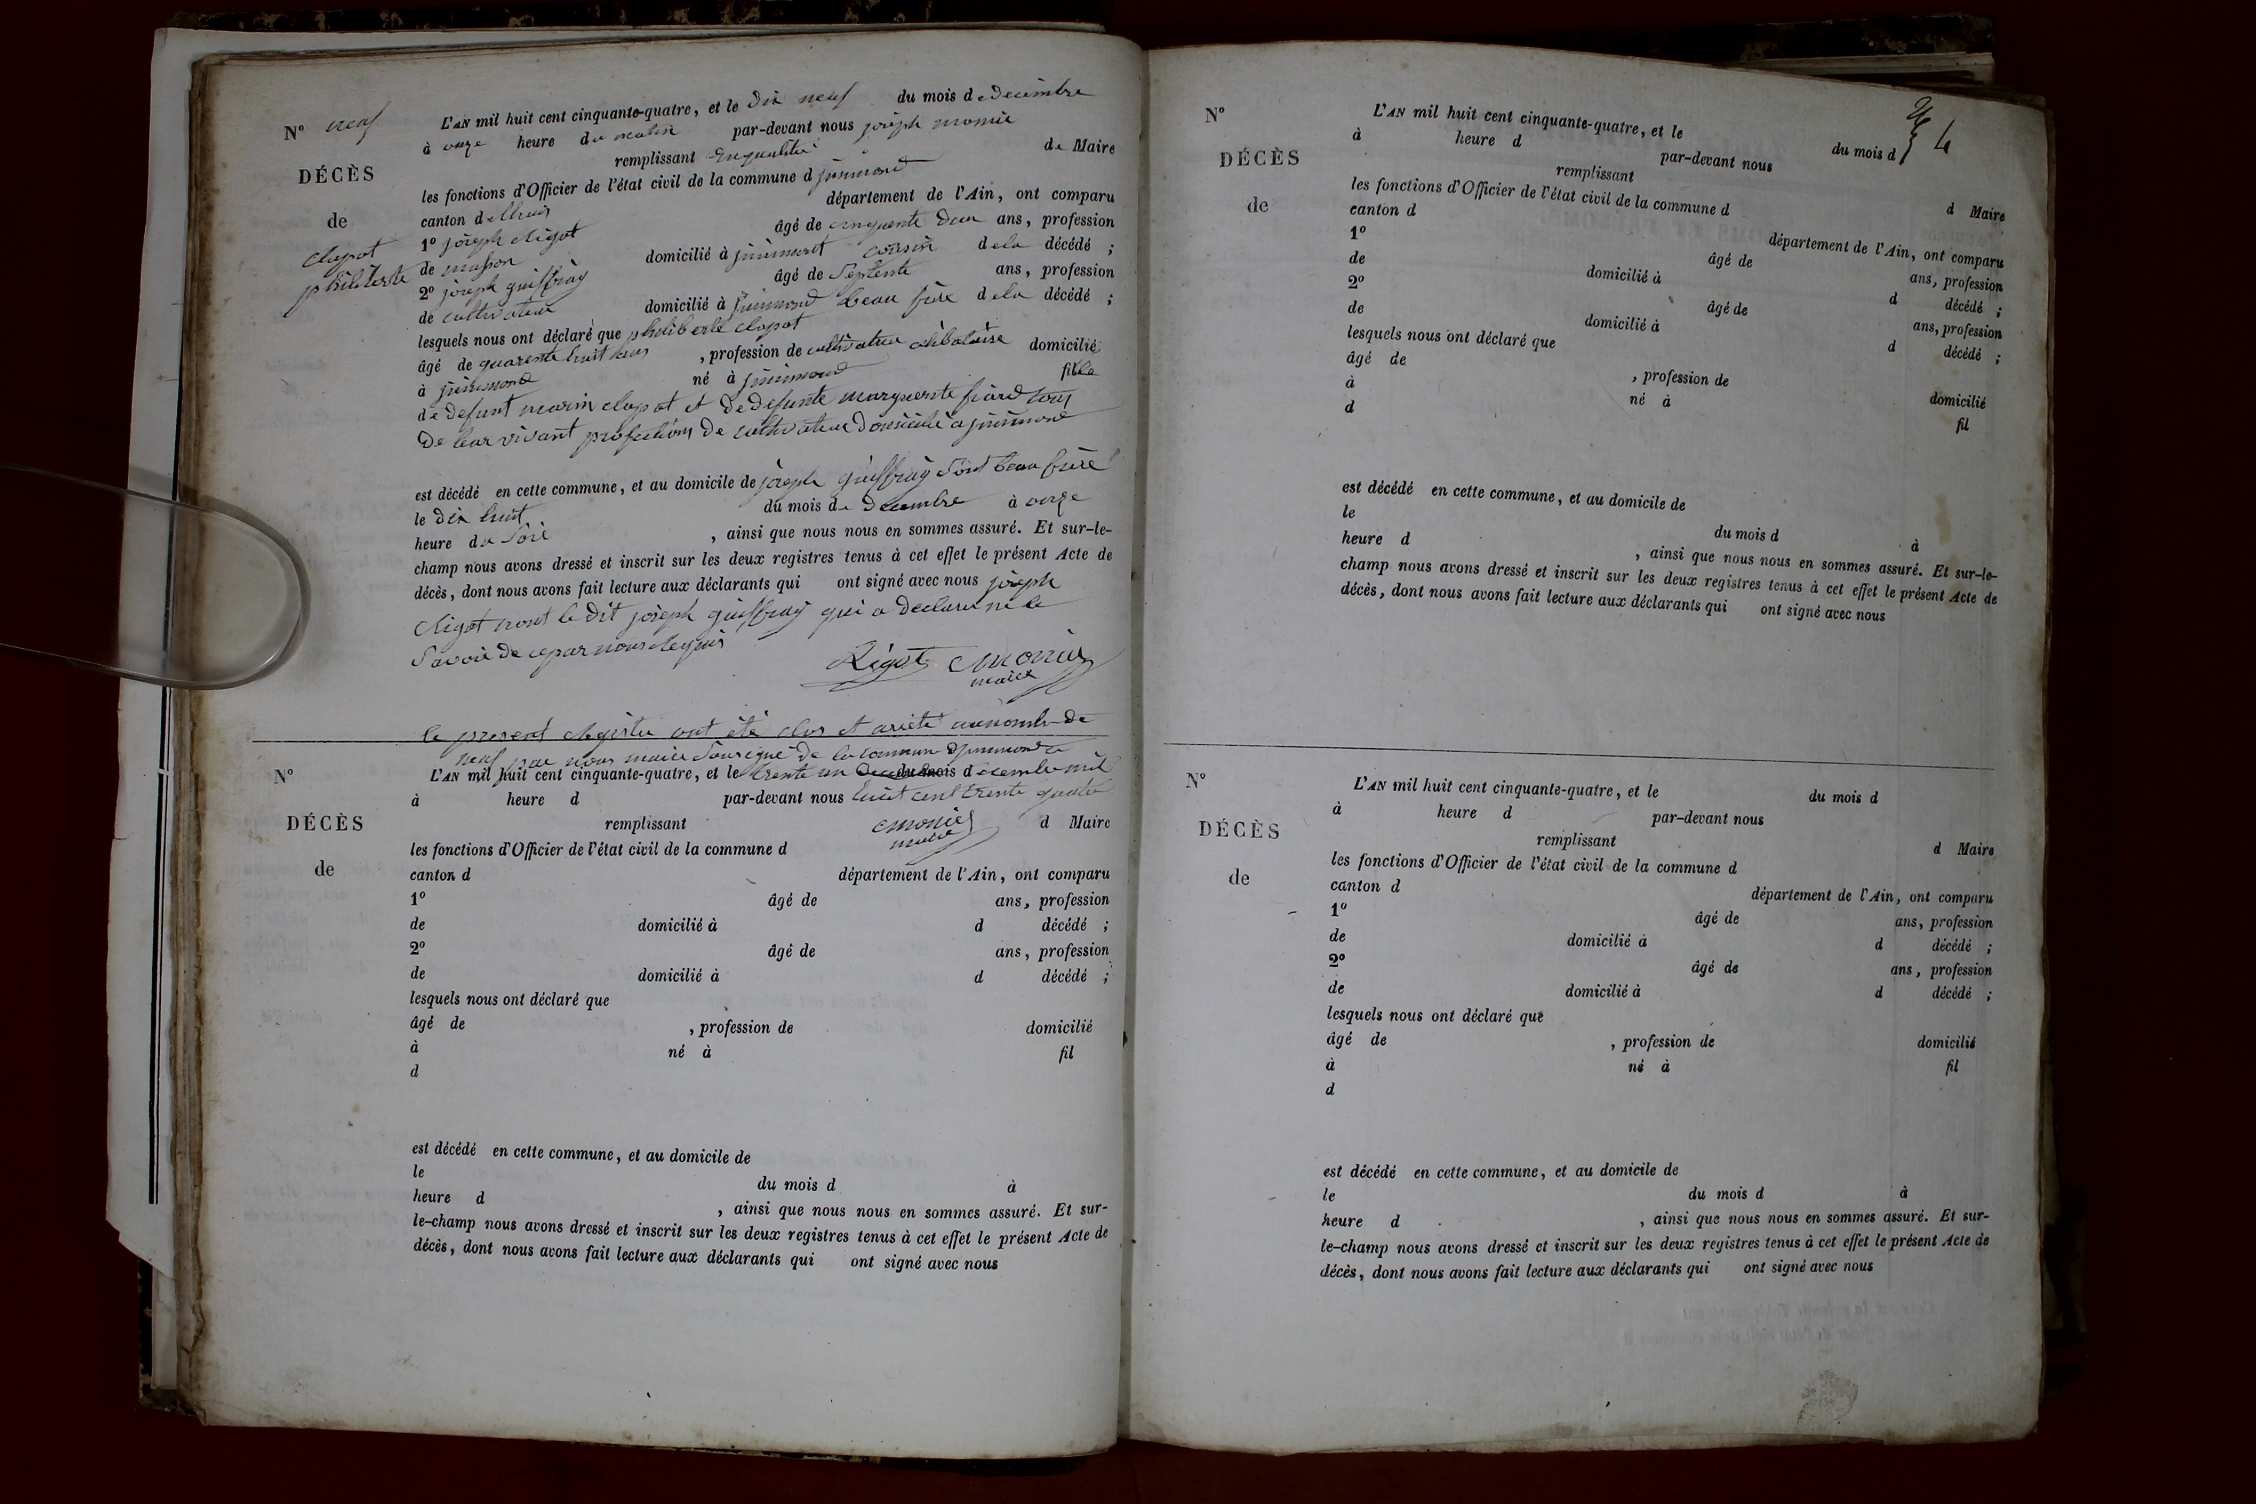 N° neuf
DÉCÈS
de
clapot
philiberte
L'AN mil huit cent cinquante-quatre, et le dix neuf du mois de decembre
à onze heure du matin par-devant nous joseph monier
remplissant enqualité de Maire
les fonctions d'Officier de l'état civil de la commune d jujurieux
canton de département de l'Ain, ont comparu
1° joseph Rigot âgé de cinquante deux ans, profession
de masson domicilié à cousin de la décédé ;
2° joseph guiffray âgé de septente ans, profession
de cultivateur domicilié à beau frère de la décédé ;
lesquels nous ont déclaré que philiberte clapot
âgé de quarente huit ans , profession de cultivateur célibataire domicilié
à né à fille
de defunt marin clapot et de defunte marguerite fiard tous
de leur vivant profections de cultivateur domicilié a
est décédé en cette commune, et au domicile de joseph guiffray sont beau frère
le dix huit du mois de decembre à onze
heure du soir , ainsi que nous nous en sommes assuré. Et sur-le-
champ nous avons dressé et inscrit sur les deux registres tenus à cet effet le présent Acte de
décès, dont nous avons fait lecture aux déclarants qui ont signé avec nous joseph
Rigot nont le dit joseph guiffray qui a declaré ne le
savoir de ce par nous requis
Rigot monier
maire
le present registre ont été clos et arieté aunombre de
neuf par nous maire sousigné de la commune
N°
L'AN mil huit cent cinquante-quatre, et le trente un du mois decembre mil
à heure d par-devant nous huit cent trente quatre
DÉCÈS
remplissant monier d Maire
maire
les fonctions d'Officier de l'état civil de la commune d
de
canton d département de l'Ain, ont comparu
1° âgé de ans, profession
de domicilié à d décédé ;
2° âgé de ans, profession
de domicilié à d décédé ;
lesquels nous ont déclaré que
âgé de , profession de domicilié
à né à fil
d
est décédé en cette commune, et au domicile de
le du mois d à
heure d , ainsi que nous nous en sommes assuré. Et sur-
le-champ nous avons dressé et inscrit sur les deux registres tenus à cet effet le présent Acte de
décès, dont nous avons fait lecture aux déclarants qui ont signé avec nous
N°
DÉCÈS
de
L'AN mil huit cent cinquante-quatre, et le du mois d
à heure d par-devant nous
remplissant d Maire
les fonctions d'Officier de l'état civil de la commune d
canton d département de l'Ain, ont comparu
1° âgé de ans, profession
de domicilié à d décédé ;
2° âgé de ans, profession
de domicilié à d décédé ;
lesquels nous ont déclaré que
âgé de , profession de domicilié
à né à fil
d
est décédé en cette commune, et au domicile de
le du mois d à
heure d , ainsi que nous nous en sommes assuré. Et sur-le-
champ nous avons dressé et inscrit sur les deux registres tenus à cet effet le présent Acte de
décès, dont nous avons fait lecture aux déclarants qui ont signé avec nous
N°
DÉCÈS
de
L'AN mil huit cent cinquante-quatre, et le du mois d
à heure d par-devant nous
remplissant d Maire
les fonctions d'Officier de l'état civil de la commune d
canton d département de l'Ain, ont comparu
1° âgé de ans, profession
de domicilié à d décédé ;
2° âgé de ans, profession
de domicilié à d décédé ;
lesquels nous ont déclaré que
âgé de , profession de domicilié
à né à fil
d
est décédé en cette commune, et au domicile de
le du mois d à
heure d , ainsi que nous nous en sommes assuré. Et sur-
le-champ nous avons dressé et inscrit sur les deux registres tenus à cet effet le présent Acte de
décès, dont nous avons fait lecture aux déclarants qui ont signé avec nous